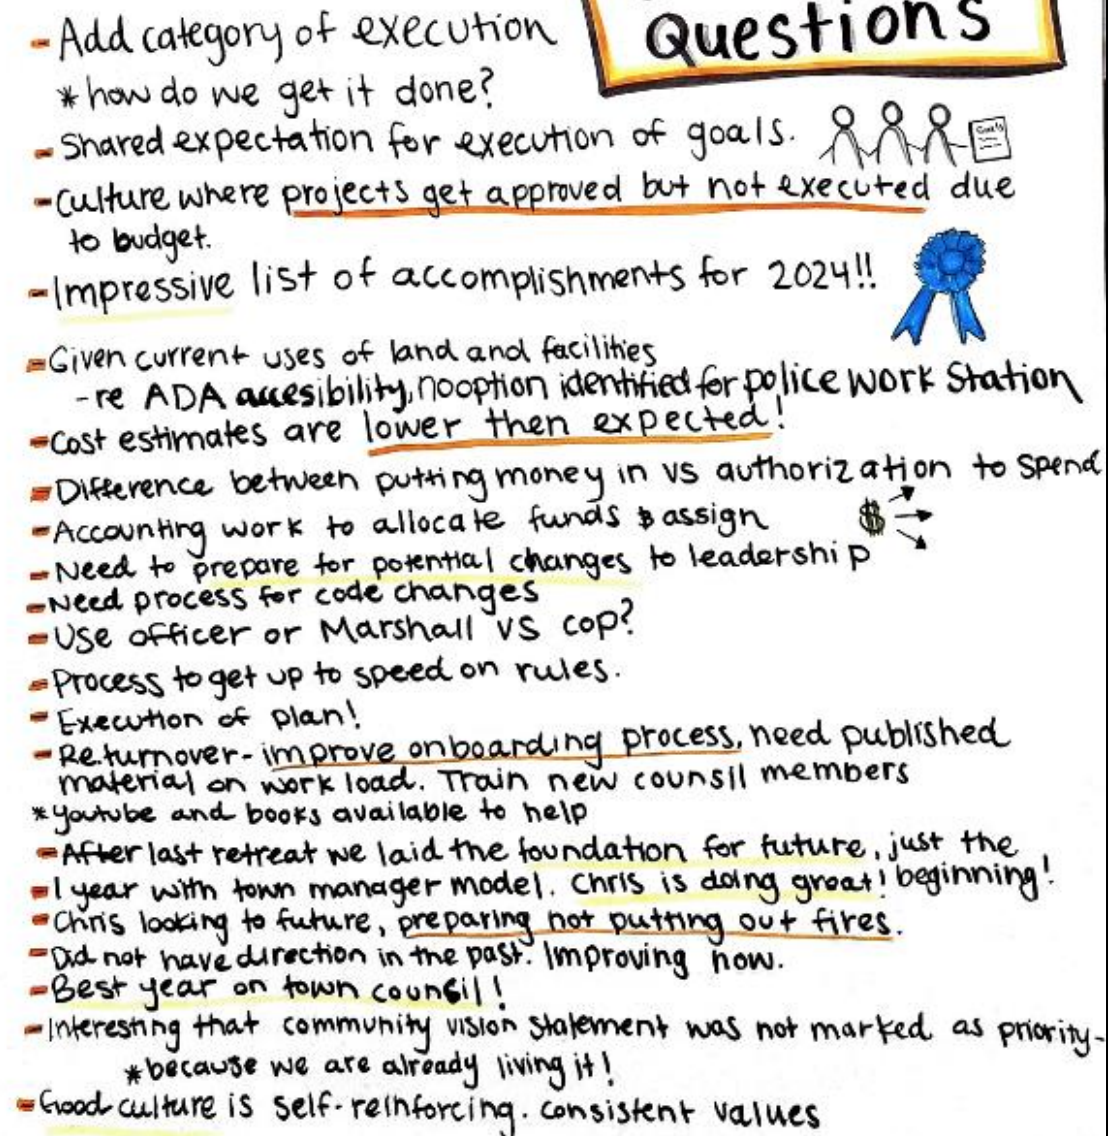 Questions
- Add category of execution
* how do we get it done?
- Shared expectation for execution of goals.
Goals
- Culture where projects get approved but not executed due
to budget.
- Impressive list of accomplishments for 2024!!
- Given current uses of land and facilities
- re ADA accesibility, no option identified for police work station
- Cost estimates are lower then expected!
- Difference between putting money in vs authorization to spend
- Accounting work to allocate funds & assign
$
- Need to prepare for potential changes to leadership
- Need process for code changes
- Use officer or Marshall vs cop?
- Process to get up to speed on rules.
- Execution of plan!
- Re turnover - improve onboarding process, need published
material on work load. Train new counsil members
* Youtube and books available to help
- After last retreat we laid the foundation for future, just the
beginning!
- 1 year with town manager model. Chris is doing great!
- Chris looking to future, preparing not putting out fires.
- Did not have direction in the past. Improving now.
- Best year on town council!
- Interesting that community vision statement was not marked as priority -
* because we are already living it!
- Good culture is self-reinforcing. consistent values